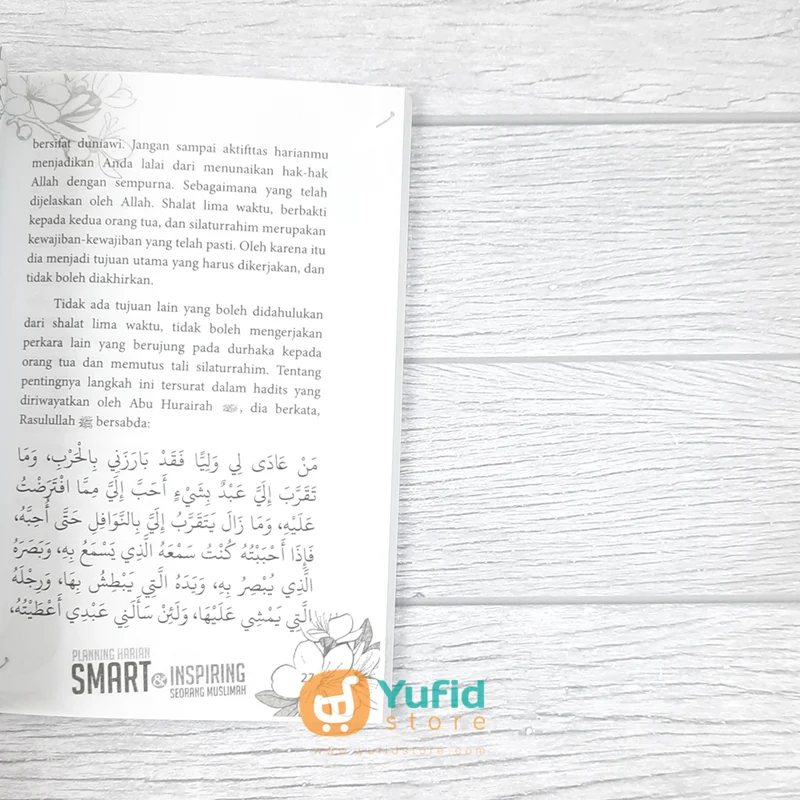 bersifat duniawi. Jangan sampai aktifttas harianmu
menjadikan Anda lalai dari menunaikan hak-hak
Allah dengan sempurna. Sebagaimana yang telah
dijelaskan oleh Allah. Shalat lima waktu, berbakti
kepada kedua orang tua, dan silaturrahim merupakan
kewajiban-kewajiban yang telah pasti. Oleh karena itu
dia menjadi tujuan utama yang harus dikerjakan, dan
tidak boleh diakhirkan.
Tidak ada tujuan lain yang boleh didahulukan
dari shalat lima waktu, tidak boleh mengerjakan
perkara lain yang berujung pada durhaka kepada
orang tua dan memutus tali silaturrahim. Tentang
pentingnya langkah ini tersurat dalam hadits yang
diriwayatkan oleh Abu Hurairah , dia berkata,
Rasulullah ﷺ bersabda:
مَنْ عَادَى لِي وَلِيًّا فَقَدْ بَارَزَنِي بِالْحَرْبِ، وَمَا
تَقَرَّبَ إِلَيَّ عَبْدٌ بِشَيْءٍ أَحَبَّ إِلَيَّ مِمَّا افْتَرَضْتُ
عَلَيْهِ، وَمَا زَالَ يَتَقَرَّبُ إِلَيَّ بِالنَّوَافِلِ حَتَّى أُحِبَّهُ،
فَإِذَا أَحْبَبْتُهُ كُنْتُ سَمْعَهُ الَّذِي يَسْمَعُ بِهِ، وَبَصَرَهُ
الَّذِي يُبْصِرُ بِهِ، وَيَدَهُ الَّتِي يَبْطِشُ بِهَا، وَرِجْلَهُ
الَّتِي يَمْشِي عَلَيْهَا، وَلَئِنْ سَأَلَنِي عَبْدِي أَعْطَيْتُهُ،
PLANNING HARIAN
SMART & INSPIRING
SEORANG MUSLIMAH
Yufid
store
www.yufidstore.com